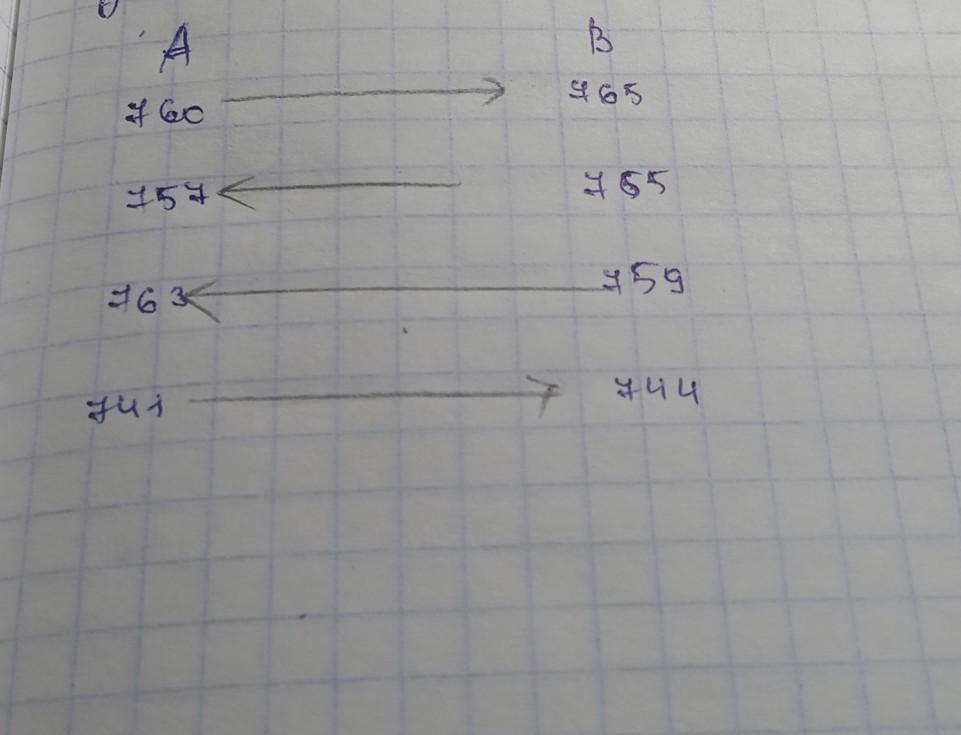 A B
760 → 765
757 ← 755
763 ← 759
741 → 744